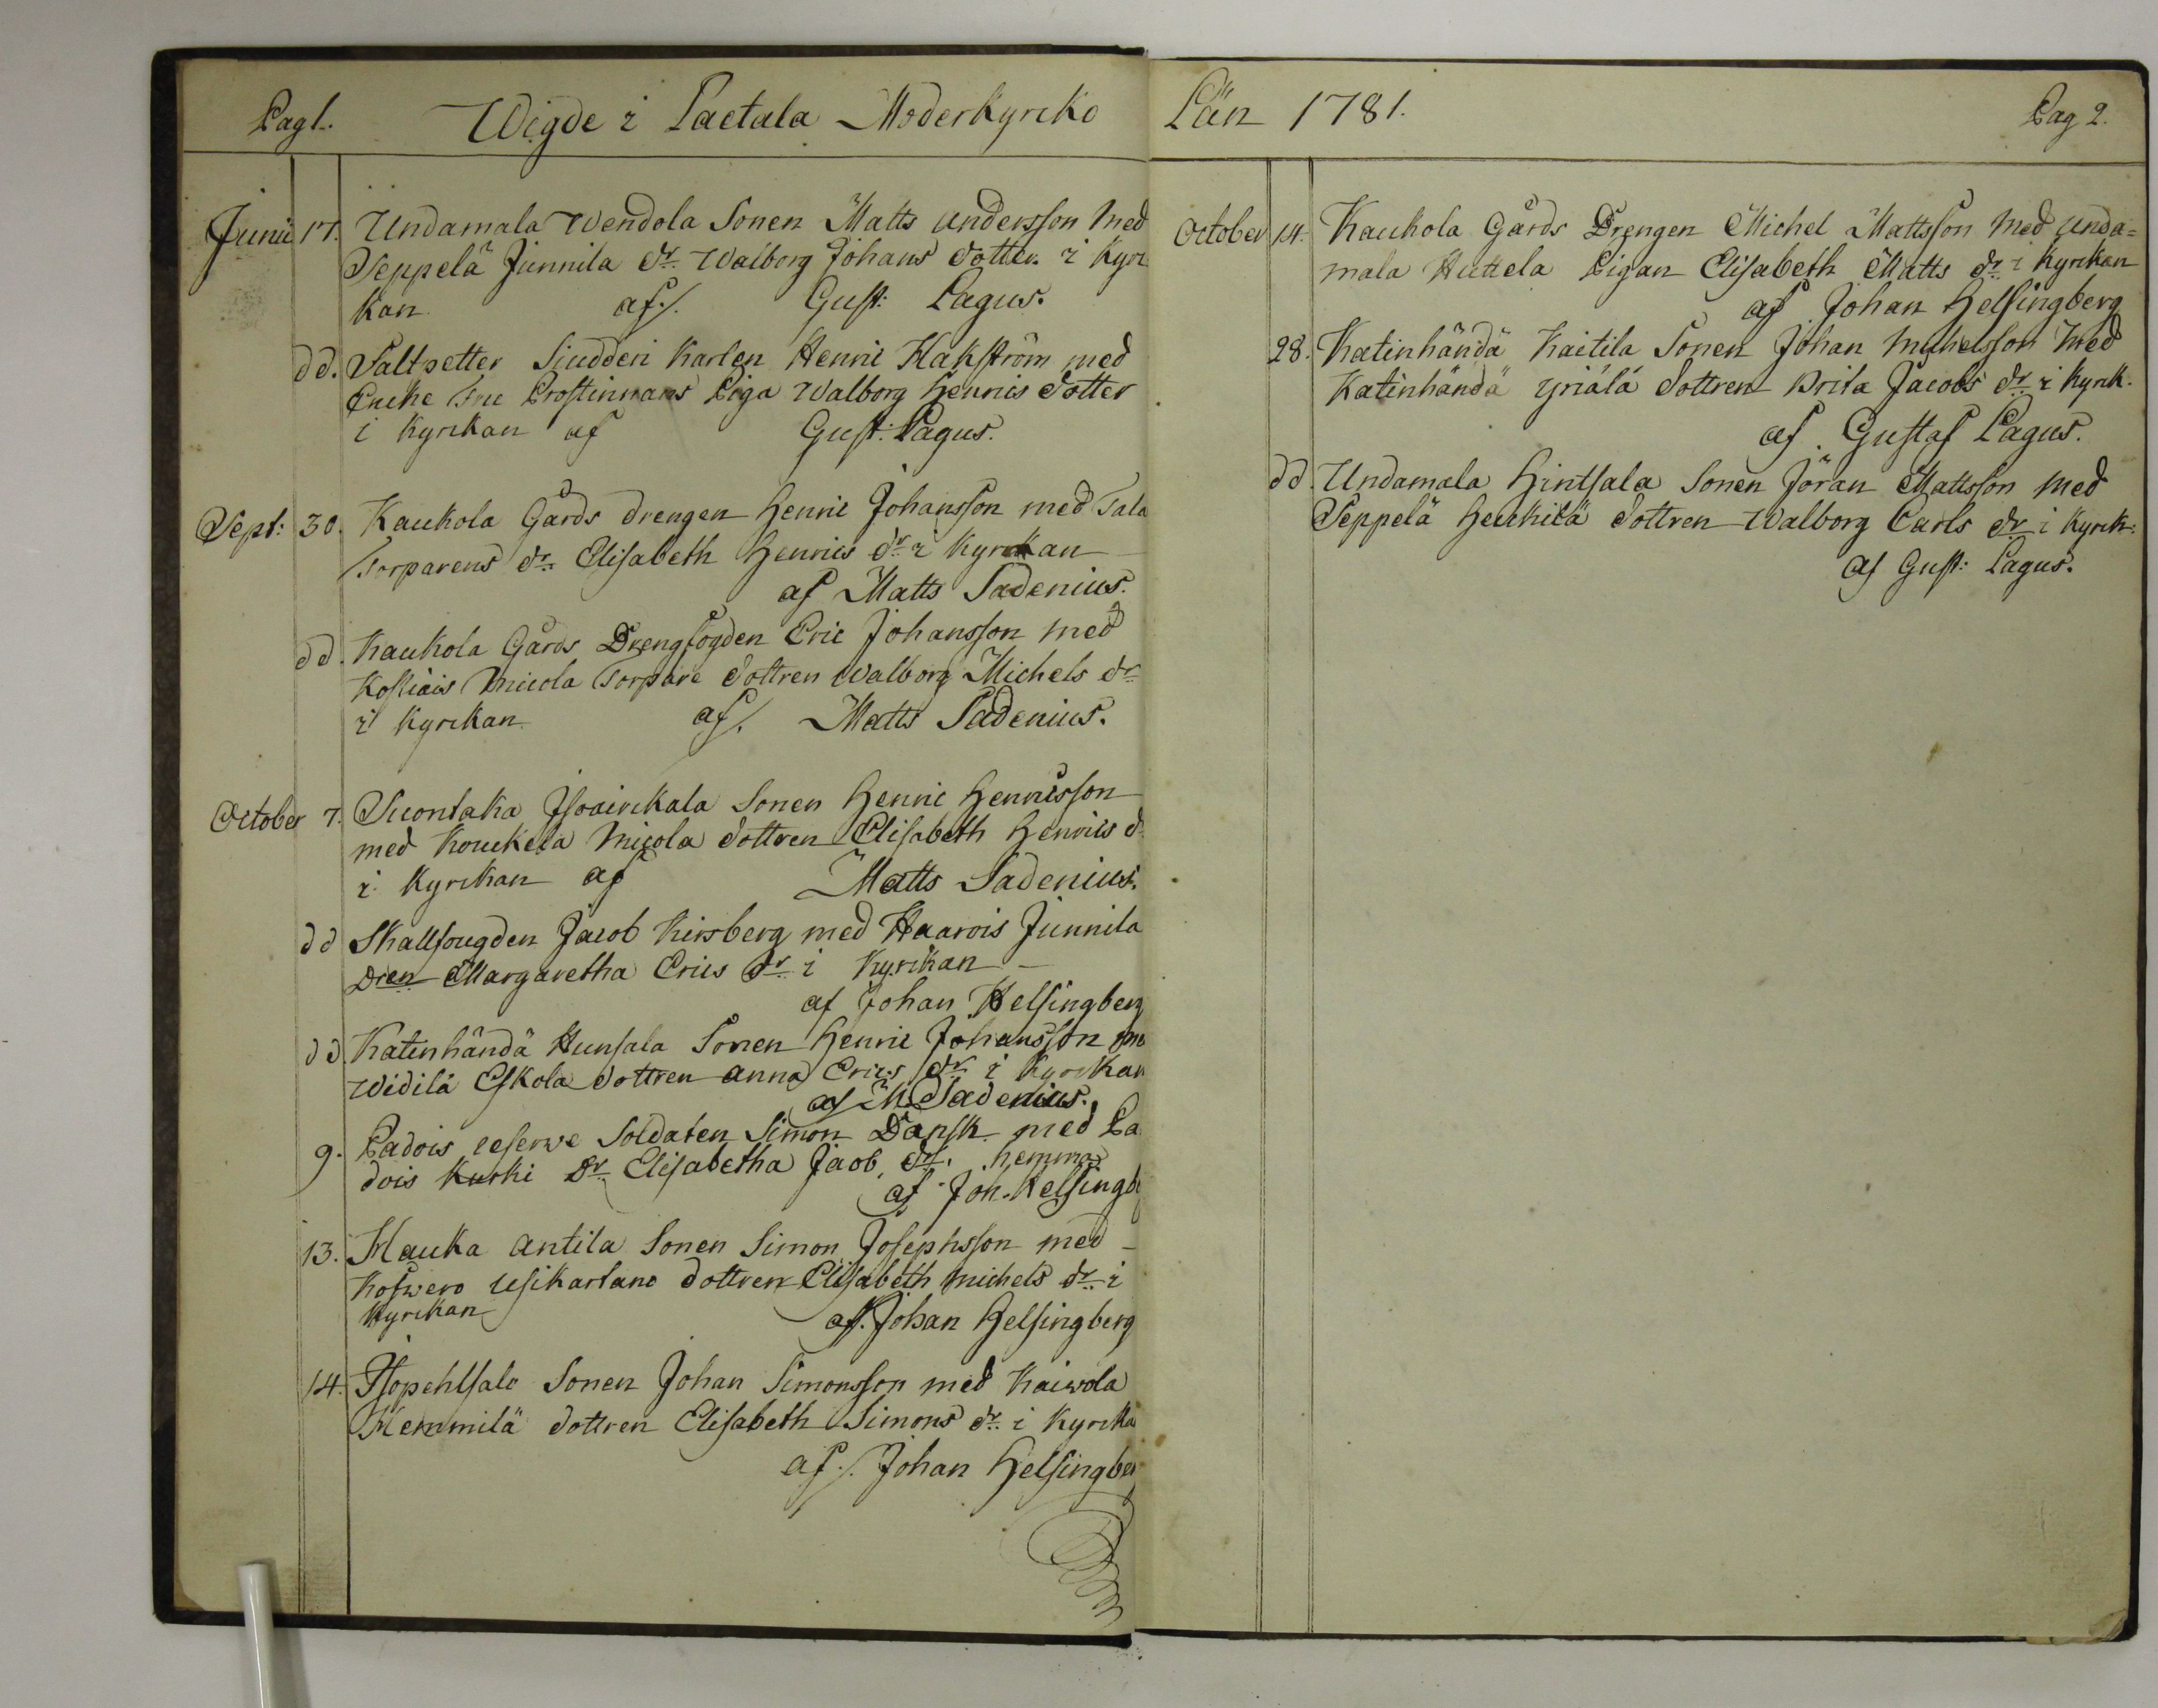 Pag 1. Wigde i Laetala Moderkyrcko
Junii 17. Undamala Wendola Sonen Matts Andersson med
Seppelä Junnila dr. Walborg Johans dotter i Kyrc
kan af./. Gust: Lagus.
dd. Saltpetter Siudderi Karlen Henric Hakström med
Encke Fru Prostinnans Piga Walborg Henrics dotter
i Kyrckan af Gust: Lagus.
Sept: 30. Kaukola Gårds drengen Henric Johansson med Tala
Torparens dr. Elisabeth Henrics dr i Kyrckan
af Matts Sadenius.
dd. Kaukola Gårds Drengfogden Eric Johansson med
Koskiais Micola Torpare dottren Walborg Michels dr
i Kyrckan af/. Matts Sadenius.
October 7. Suontaka Isoairckala Sonen Henric Henricsson
med Kouckela Micola dottren Elisabeth Henrics d
i Kyrckan af Matts Sadenius.
dd Skallfougden Jacob Kirsberg med Haarois Junnila
Dren Margaretha Erics dr i Kyrckan
af Johan Helsingberg
dd Katinhändä Hunsala Sonen Henric Johansson me
Widilä Eskola dottren Anna Erics dr i Kyrckan
af M. Sadenius.
9. Padois reserwe Soldaten Simon Dansk med Pa
dois Kurki Dr Elisabetha Jacob dr. hemma
af Joh. Helsingbe
13. Hauka Antila Sonen Simon Josephsson med
Kofwero Usikartano dottren Elisabeth Michels dr i
Kyrckan af. Johan Helsingberg
14. Isopehtsalo Sonen Johan Simonsson med Kaiwola
Hemmilä dottren Elisabeth Simons dr i Kyrcka
af./. Johan Helsingber
Län 1781. Pag 2.
October 14. Kaukola Gårds Drengen Michel Mattsson med Unda=
mala Huttela Pigan Elisabeth Matts dr i Kyrckan
af Johan Helsingberg
28. Katinhändä Kaitila Sonen Johan Michelsson med
Katinhändä Yriälä dottren Brita Jacobs dr i Kyrck.
af. Gustaf Lagus.
dd. Undamala Hintsala Sonen Jöran Mattsson med
Seppelä Heickilä dottren Walborg Carls dr i Kyrck:
af Gust: Lagus.